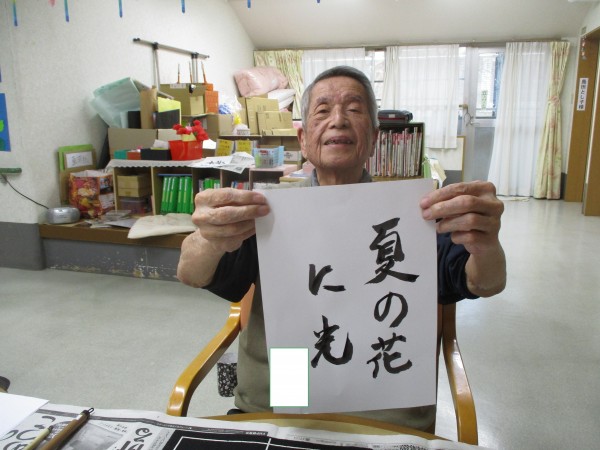 夏の花
に光